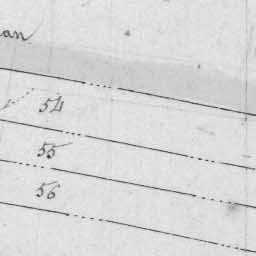 an
54
55
56